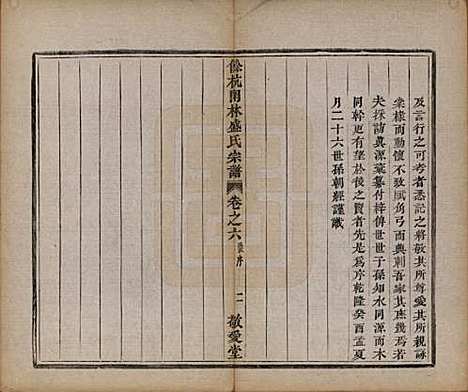 及言行之可考者悉記之將敬其所尊愛其所親詠
棠棣而動懷不致賦角弓而興刺吾家其庶幾焉若
夫探訪眞源彙纂付梓俾世世子孫知水同源而木
同幹更有望於後之賢者先是爲序乾隆癸酉孟夏
月二十六世孫朝經謹識
餘杭閑林盛氏宗譜
卷之六
序
二
敬愛堂